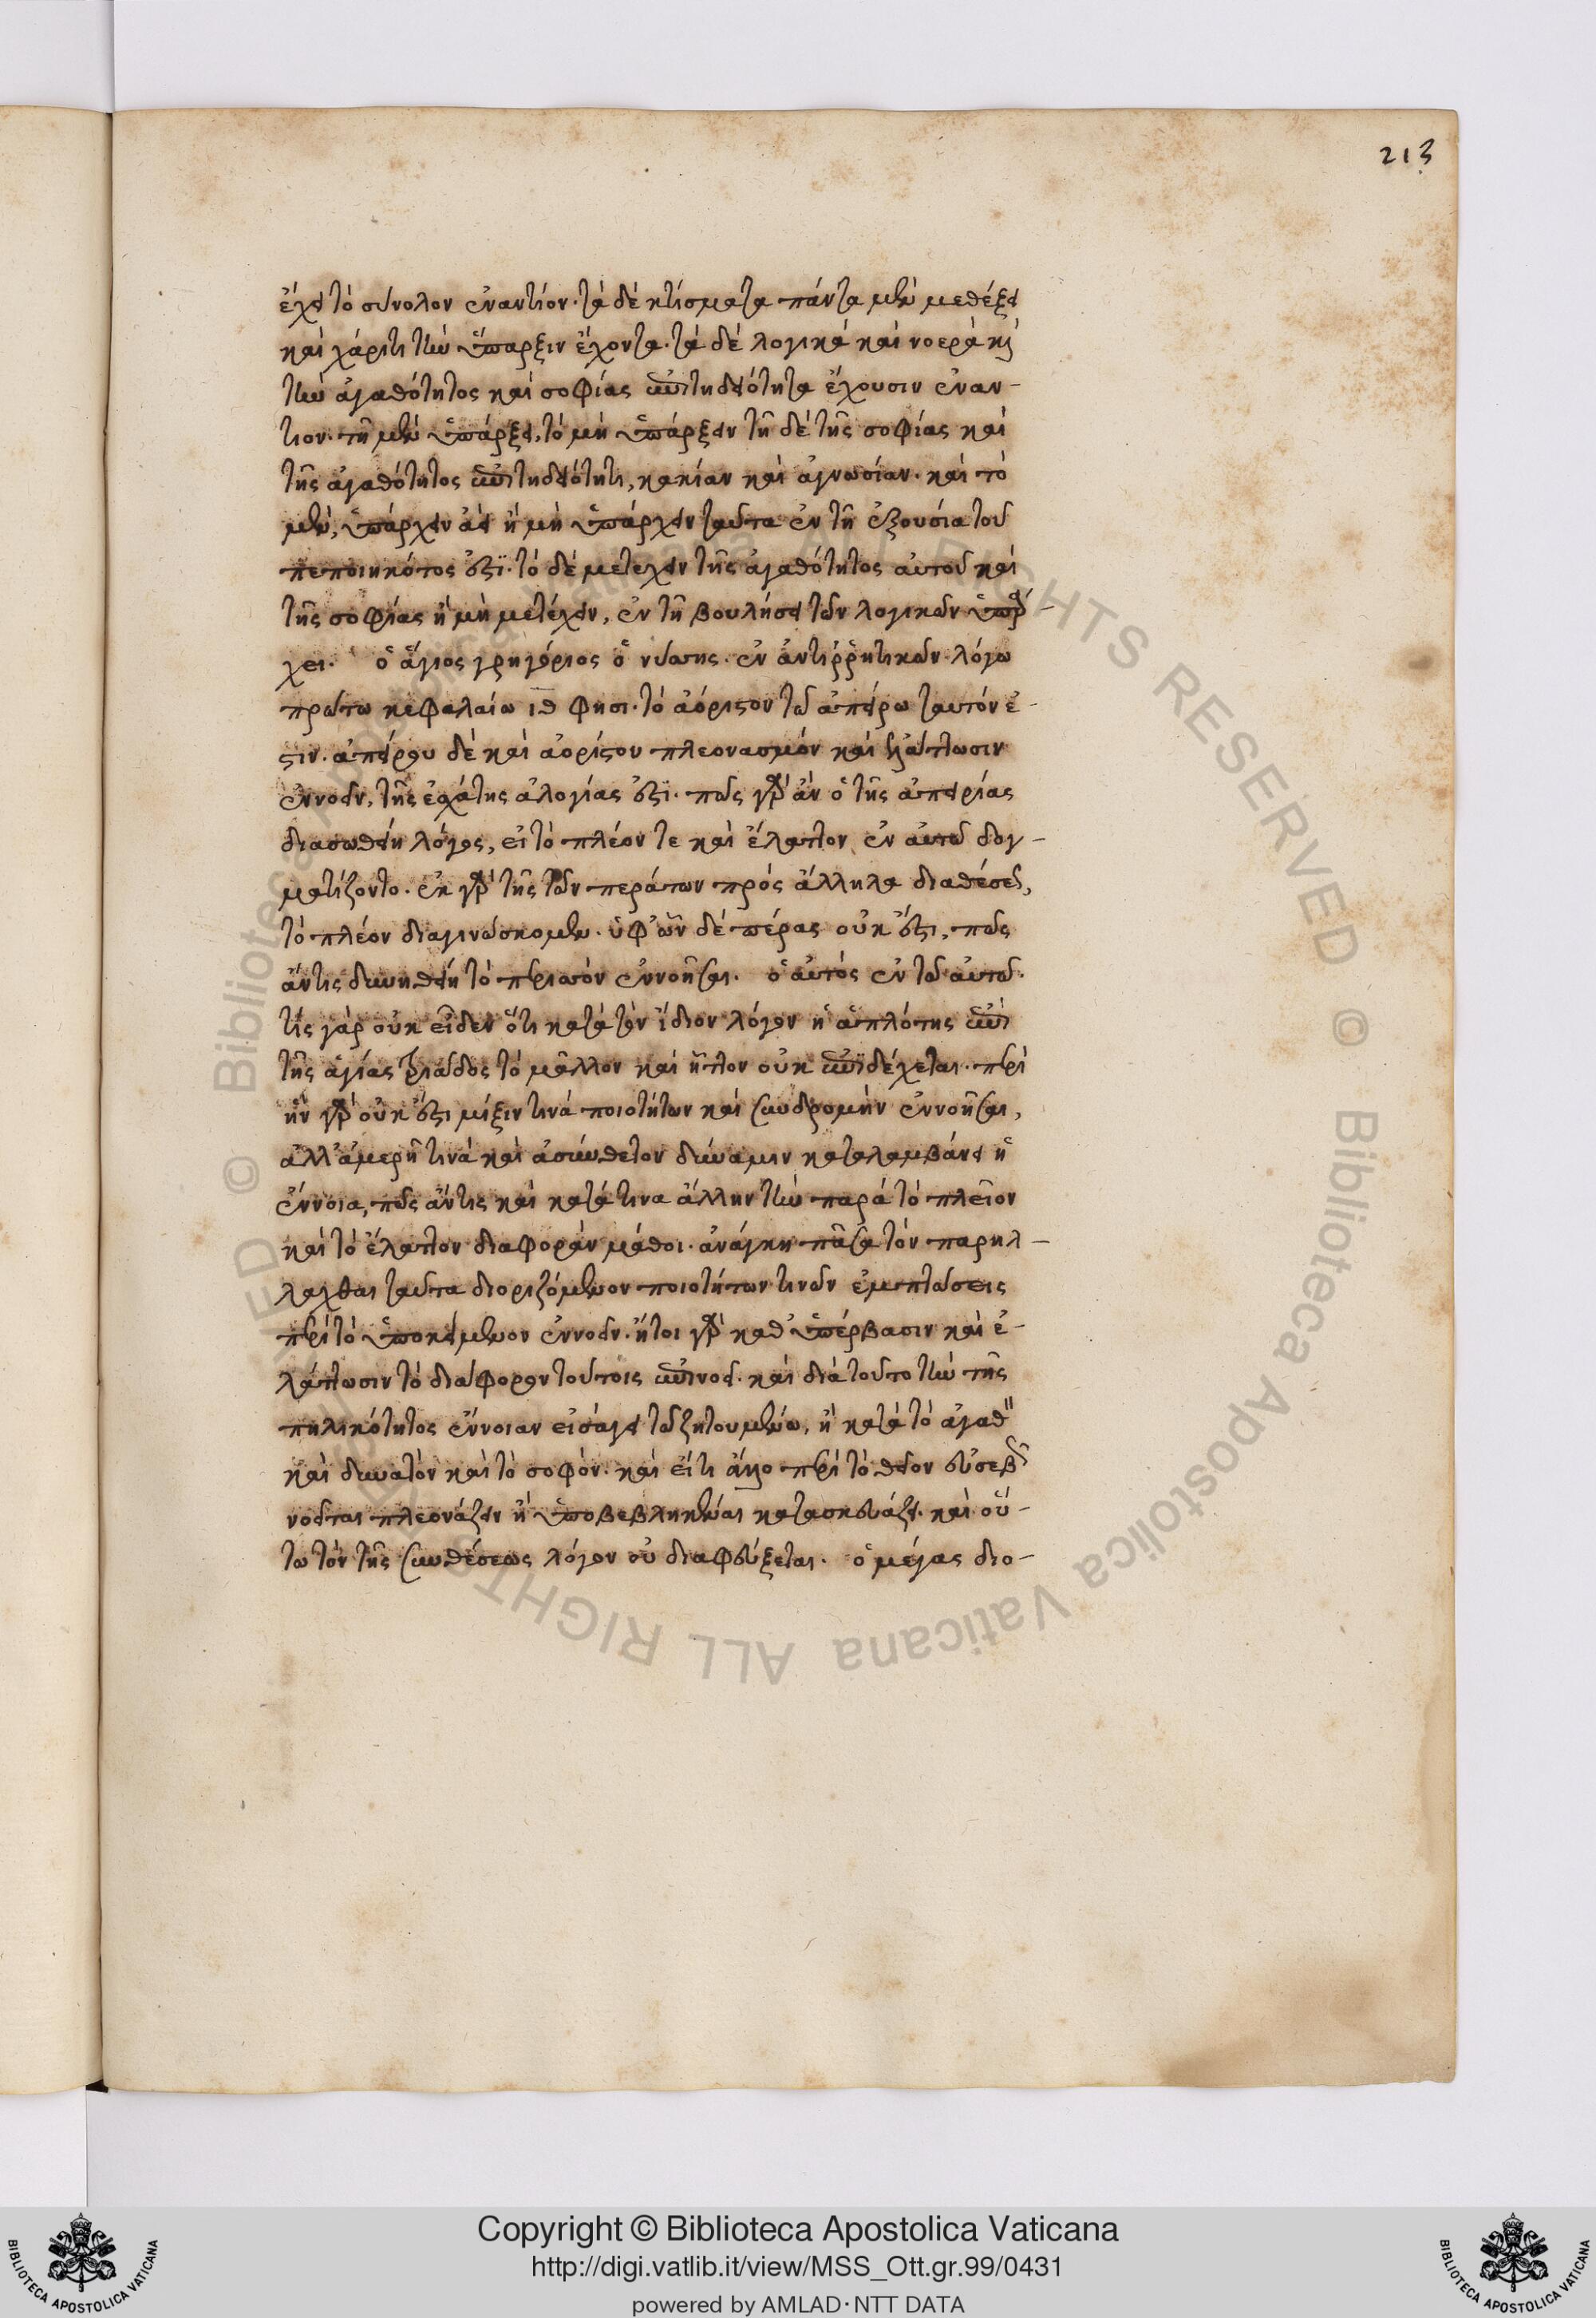 213
ἔχει τὸ σύνολον ἐναντίον. τὰ δὲ κτίσματα πάντα μὲν μεθέξει
καὶ χάριτι τὴν ὕπαρξιν ἔχοντα. τὰ δὲ λογικὰ καὶ νοερὰ καὶ
τὴν ἀγαθότητος καὶ σοφίας ἐπιτηδειότητα ἔχουσιν ἐναν-
τιον. τῆ μὲν ὑπάρξει, τὸ μὴ ὑπάρξειν τῆ δὲ τῆς σοφίας καὶ
τῆς ἀγαθότητος ἐπιτηδειότητι, κακίαν καὶ ἀγνωσίαν. καὶ τὸ
μὲν, ὑπάρχειν ἀεὶ ἢ μὴ ὑπάρχειν ταῦτα ἐν τῆ ἐξουσία τοῦ
πεποιηκότος ἐστϊ. τὸ δὲ μετεχειν τῆς ἀγαθότητος αὐτοῦ καὶ
τῆς σοφίας ἢ μὴ μετέχειν, ἐν τῆ βουλήσει τῶν λογικῶν ὑπάρ-
χει. ὁ ἅγιος γρηγόριος ὁ νύσσης. ἐν ἀντιῤῥητικῶν λόγω
πρώτω κεφαλαίω ιθ φησι. τὸ ἀόριστον τῶ ἀπείρω ταυτόν ἐ-
στιν. ἀπείρου δὲ καὶ ἀορίστου πλεονασμόν καὶ ἐλάττωσιν
ἐννοεῖν, τῆς ἐσχάτης ἀλογίας ἐστϊ. πῶς γὰρ ἂν ὁ τῆς ἀπειρίας
διασωθείη λόγος, εἰ τὸ πλέον τε καὶ ἔλαττον ἐν αὐτῶ δογ-
ματίζοντο. ἐκ γὰρ τῆς τῶν περάτων πρὸς ἄλληλα διαθέσεως,
τὸ πλέον διαγινώσκομεν. ὑφ' ὧν δὲ πέρας οὐκ ἔστι, πῶς
ἄντις δυνηθείη τὸ περιττὸν ἐννοῆσαι. ὁ αὐτός ἐν τῶ αὐτῶ.
τίς γὰρ οὐκ εἶδεν ὅτι κατὰ τὸν ἴδιον λόγον ἡ ἁπλότης ἐπὶ
τῆς ἁγίας τριάδος τὸ μᾶλλον καὶ ἧττον οὐκ ἐπϊδέχεται. περὶ
ἣν γὰρ οὐκ ἔστι μίξιν τινὰ ποιοτήτων καὶ συνδρομὴν ἐννοῆσαι,
ἀλλ' ἀμερῆ τινὰ καὶ ἀσύνθετον δύναμιν καταλαμβάνει ἡ
ἔννοια, πῶς ἄντις καὶ κατά τινα ἄλλην τὴν παρὰ τὸ πλεῖον
καὶ τὸ ἔλαττον διαφορὰν μάθοι. ἀνάγκη πᾶσα τὸν παρηλ-
λαχθαι ταῦτα διοριζόμενον ποιοτήτων τινῶν ἐμπτώσεις
περὶ τὸ ὑποκείμενον ἐννοεῖν. ἤτοι γὰρ καθ' ὑπέρβασιν καὶ ἐ-
λάττωσιν τὸ διάφορον τούτοις ἐπινοεῖ. καὶ διὰ τοῦτο τὴν τῆς
πηλικότητος ἔννοιαν εἰσάγει τῶ ζητουμένω, ἢ κατὰ τὸ ἀγαθ"
καὶ δυνατὸν καὶ τὸ σοφὸν. καὶ εἴ τι ἄλλο περὶ τὸ θεῖον εὐσεβῶς
νοεῖται πλεονάζειν ἢ ὑποβεβληκέναι κατασκευάζει. καὶ οὕ-
τω τὸν τῆς συνθέσεως λόγον οὐ διαφεύξεται. ὁ μέγας διο-
Copyright © Biblioteca Apostolica Vaticana
http://digi.vatlib.it/view/MSS_Ott.gr.99/0431
powered by AMLAD·NTT DATA